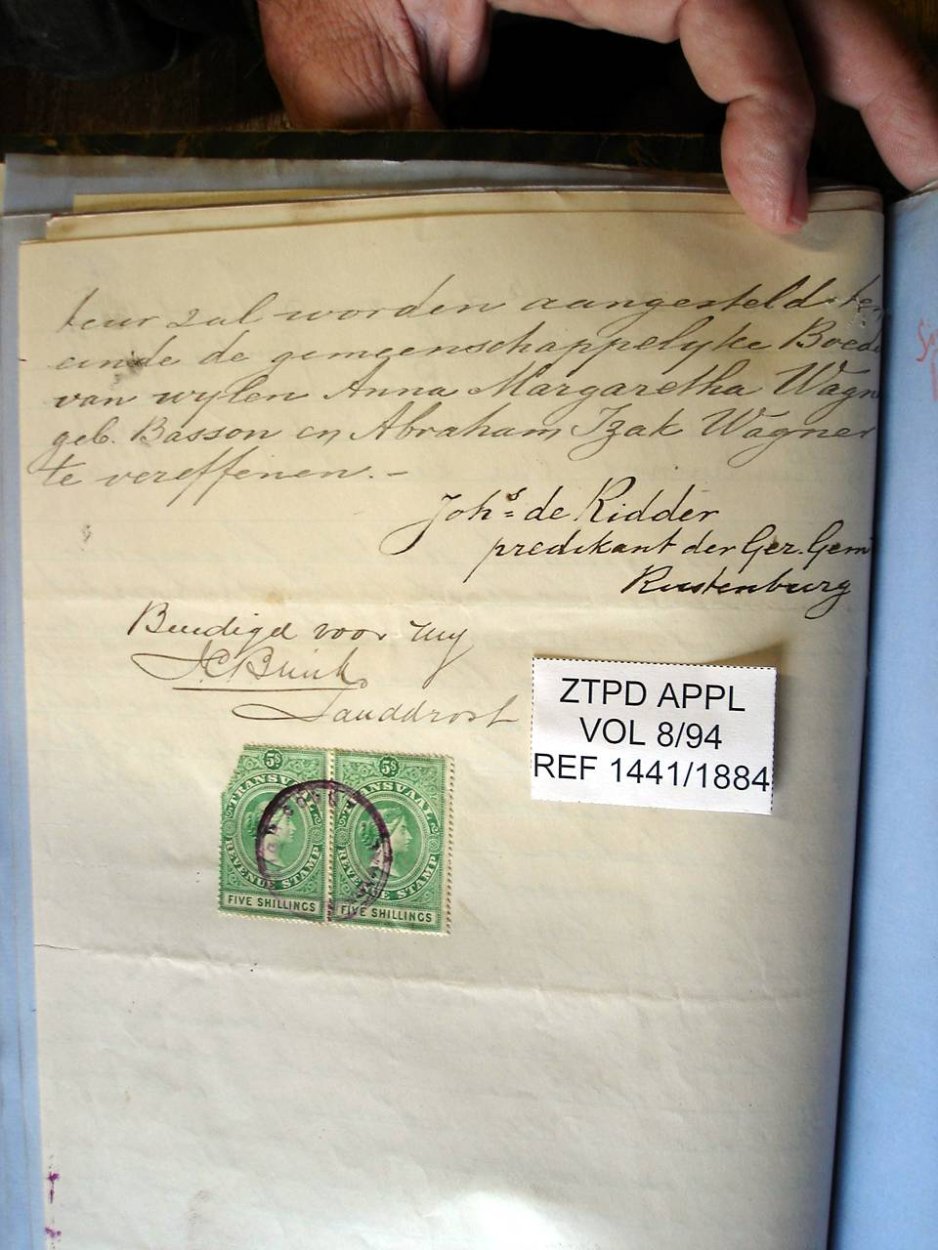 teur zal worden aangesteld te
einde de gemeenschappelyke Boed
van wylen Anna Margaretha Wagn
geb. Basson en Abraham Izak Wagner
te vereffenen. -
Johs. de Ridder
predikant der Ger. Gem
Rustenburg
Beedigd voor my
Landdrost
ZTPD APPL
VOL 8/94
REF 1441/1884
5s 5s
TRANSVAAL TRANSVAAL
REVENUE STAMP REVENUE STAMP
FIVE SHILLINGS FIVE SHILLINGS